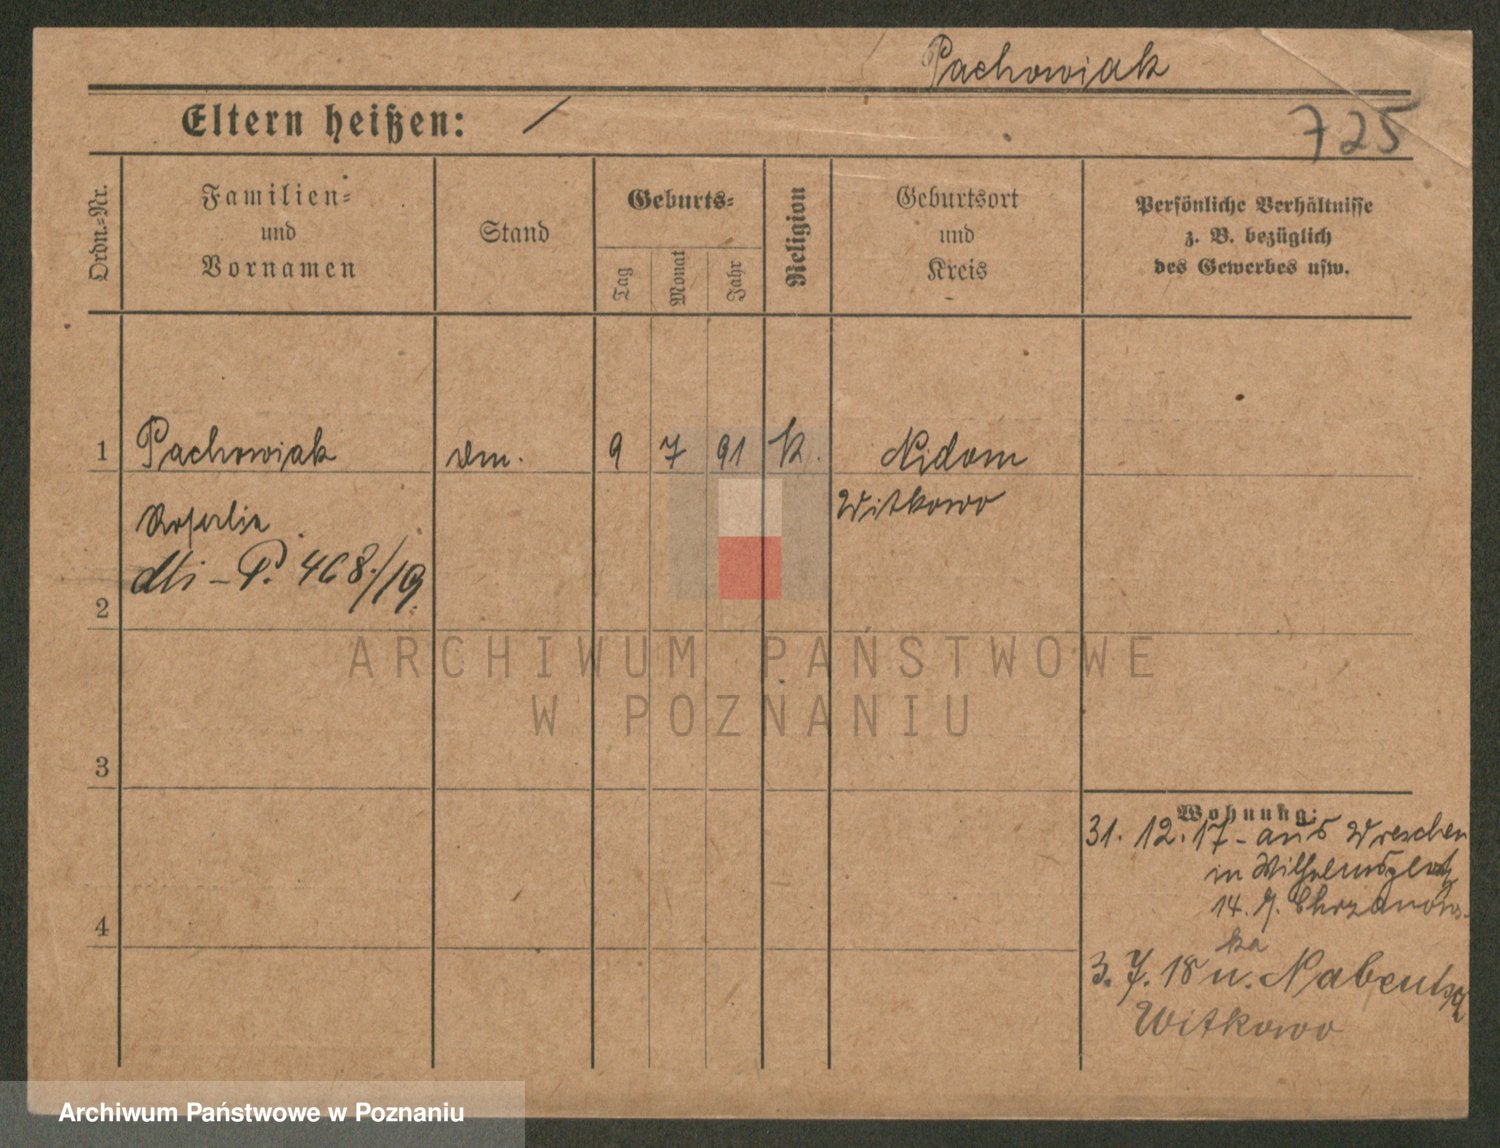 Pachowiak
Eltern heißen: /
725
Ordn.-Nr.
Familien-
und
Vornamen
Stand
Geburts-
Tag
Monat
Jahr
Religion
Geburtsort
und
Kreis
Persönliche Verhältnisse
z. B. bezüglich
des Gewerbes usw.
1 Pachowiak 9 7 91 k. Nidom
Witkowo
Rosalie
P. 468./19.
2
3
4
Wohnung:
31. 12. 17 - aus Wreschen
in Wilhelmsplatz
14. Chrzanows-
ka
3. 7. 18 n.
Witkowo
ARCHIWUM PAŃSTWOWE
W POZNANIU
Archiwum Państwowe w Poznaniu